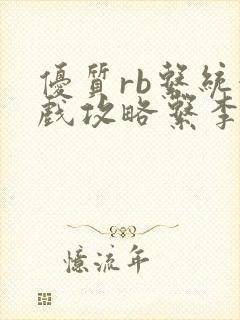 優質rb繫統
戲攻略繫李
憶流年